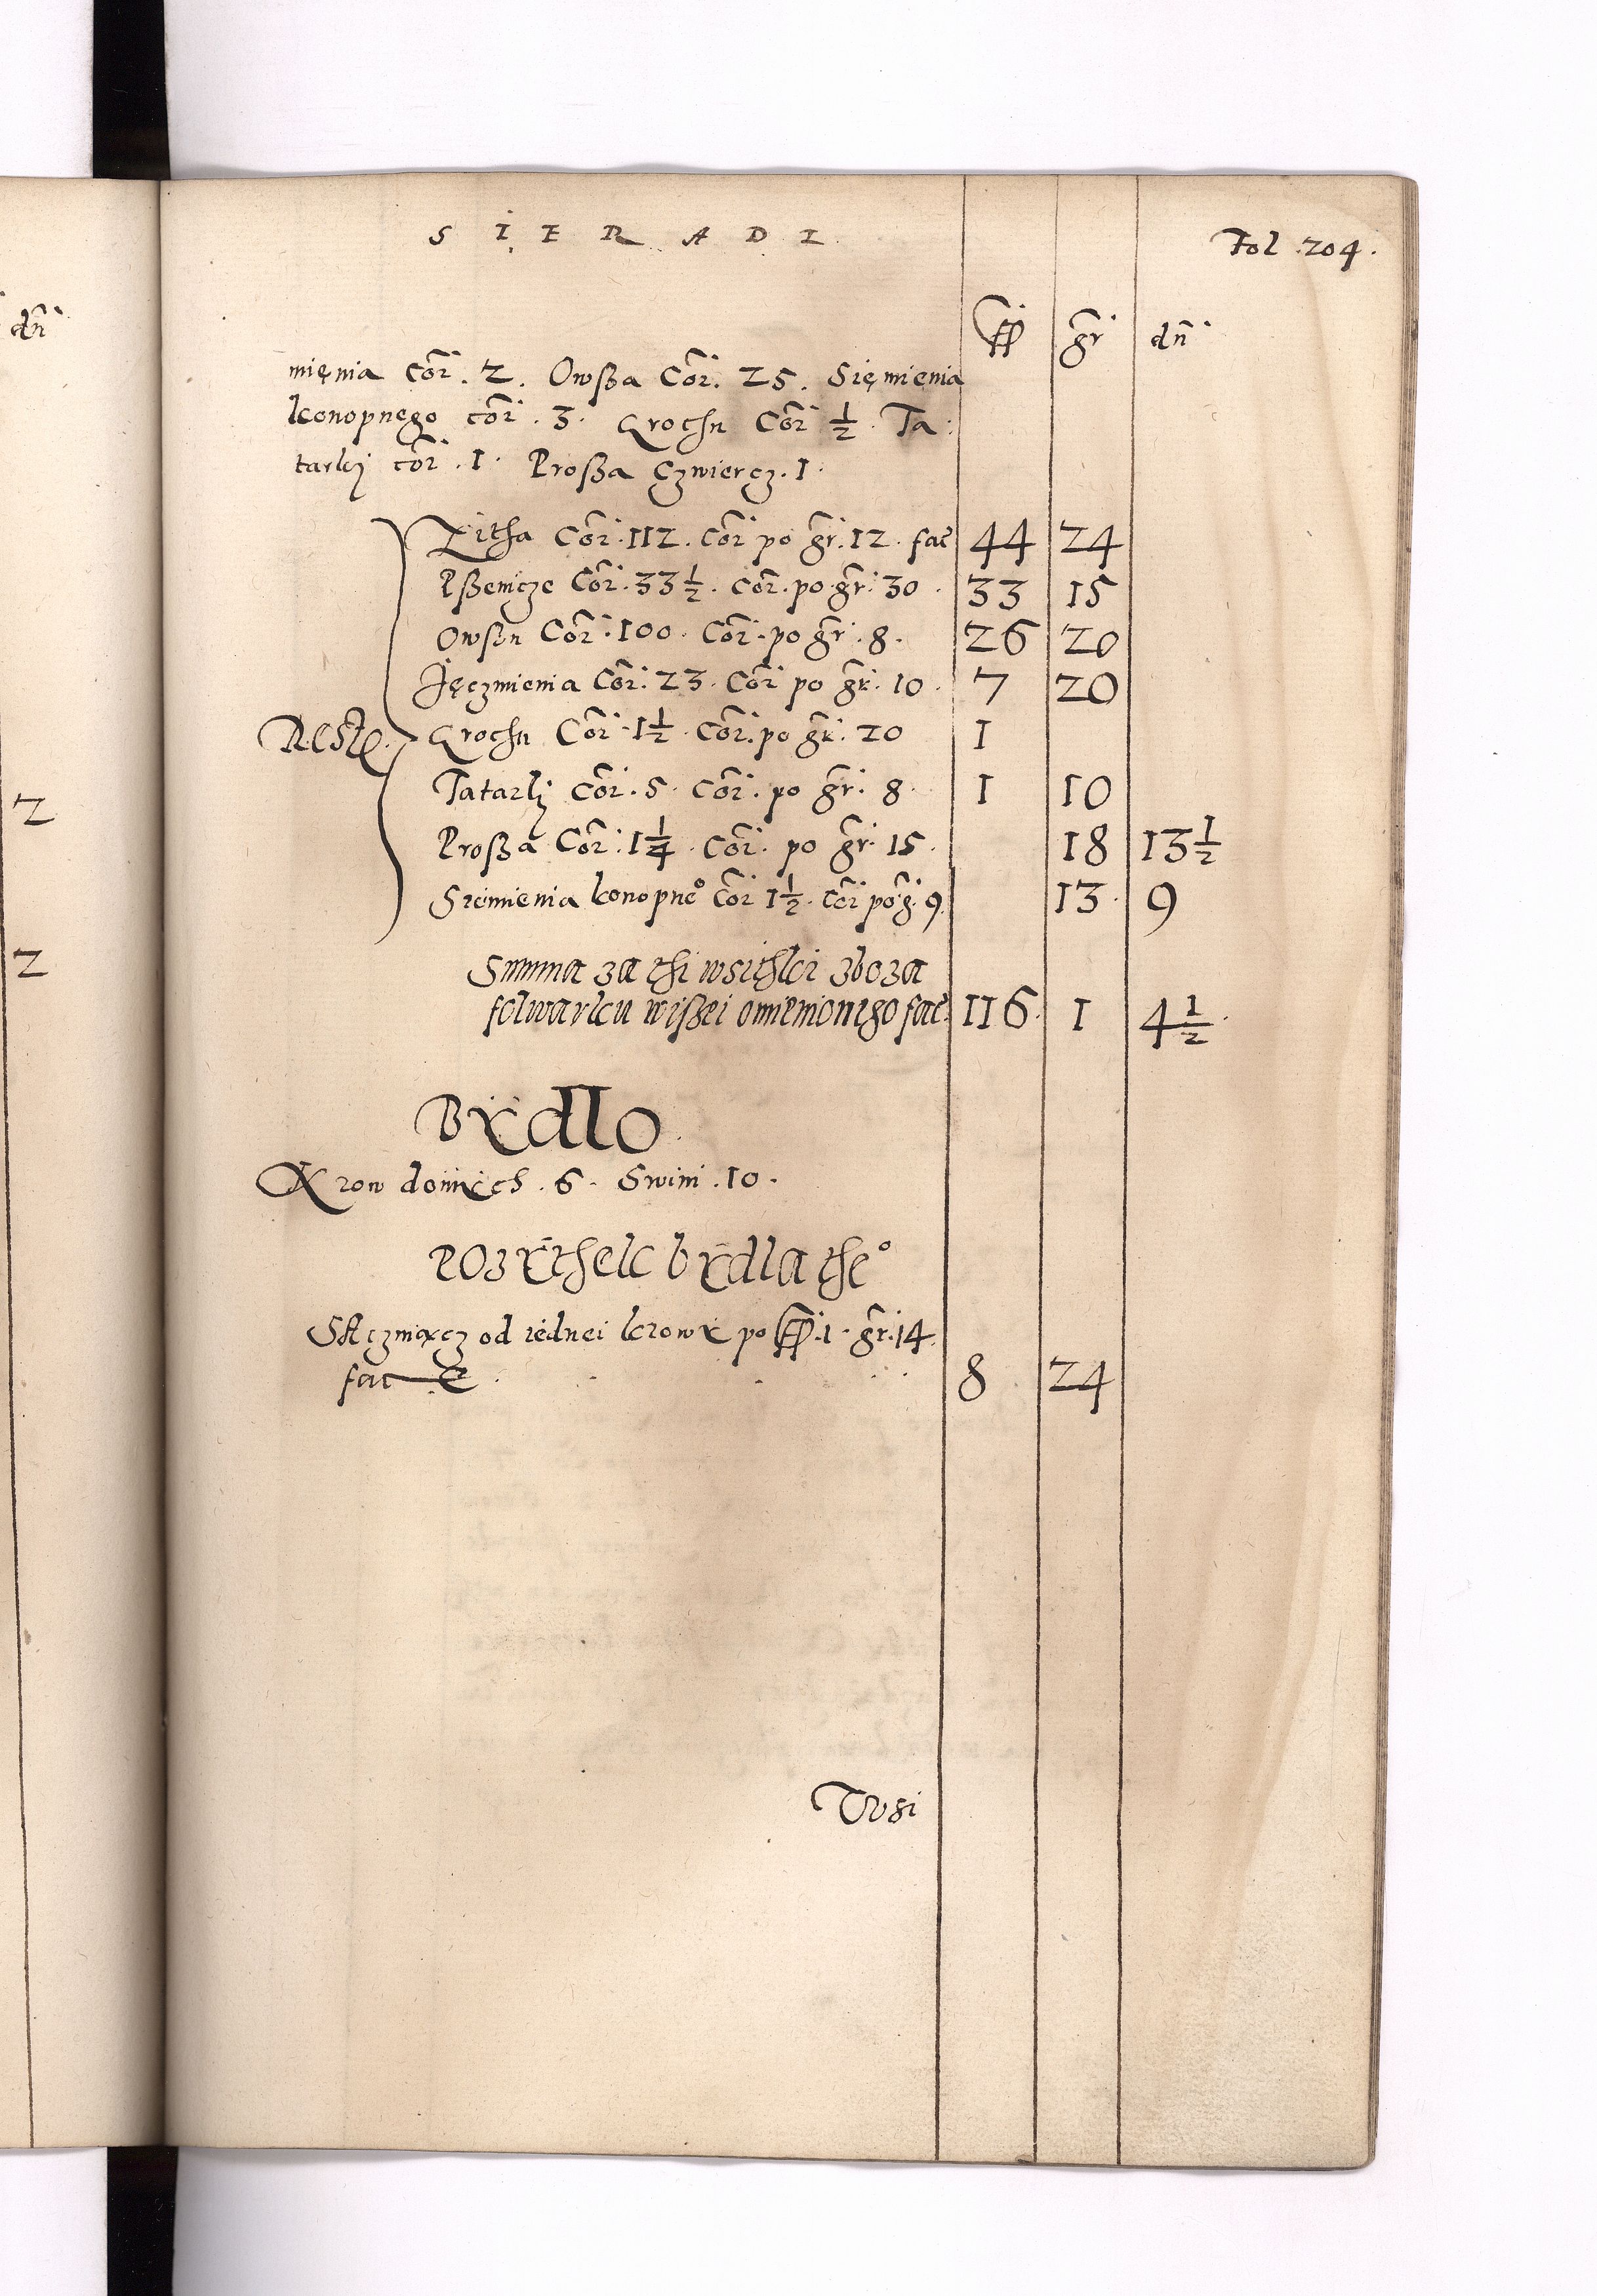 SIERADI
Fol 204.
ff gr dn
mięnia Cor. 2. Owßa Cor. 25. Sięmienia
konopnego cor. 3. Grochu Cor ½. Ta:
tarkj cor. 1. Proßa Czwiercz. 1.
Zitha Cor. 112. Cor po gr. 12. fac 44 24
Pßenicze Cor. 33½. Cor. po gr. 30. 33 15
Owszu Cor. 100. Cor. po gr. 8. 26 20
Jęczmienia Cor. 23. Cor po gr. 10. 7 20
Reste. Grochu Cor 1½. Cor. po gr. 20 1
Tatarkj Cor. 5. Cor. po gr. 8. 1 10
Proßa Cor. 1¼. Cor. po gr. 15. 18 13½
Siemienia konopneo Cor 1½. Cor po g. 9. 13. 9
Summa za thi wsithki zboza
folwarku wißei omienionego fac. 116. 1 4½.
Bydlo.
Krow doinych. 6. Swini. 10.
Pozythek bydla theo
Staczniący od iednei krowy po ff. 1. gr. 14.
fac 8 24
dn
2
2